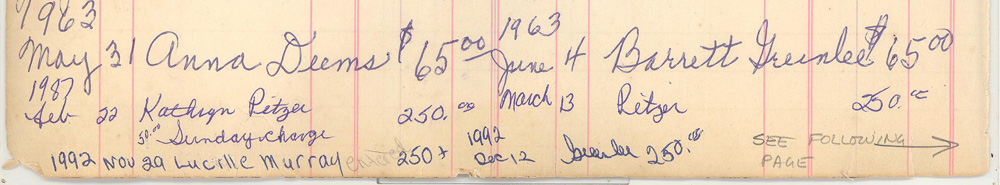 1963
May 31 Anna Deems $65.00
1963
June 4 Barrett Greenlee $65.00
1987
Feb 22 Kathryn Pitzer 250.00
March 13 Pitzer 250.00
50.00 Sunday charge
1992 Nov 29 Lucille Murray entered 250+
1992
Dec 12 Greenlee 250.00
SEE FOLLOWING
PAGE